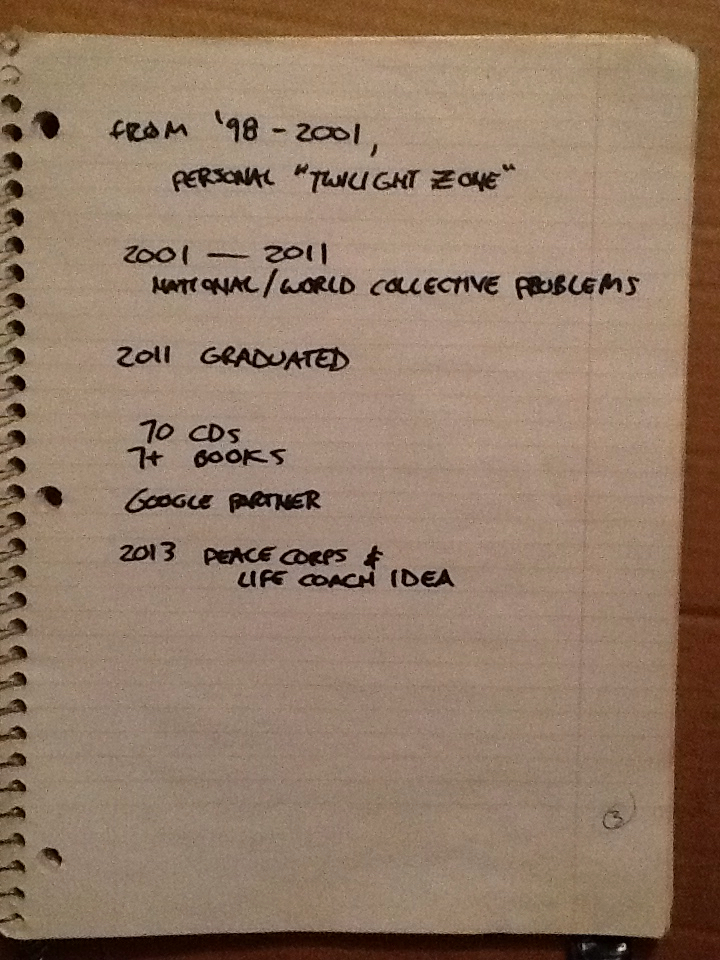 FROM '98 - 2001,
PERSONAL "TWILIGHT ZONE"
2001 — 2011
NATIONAL/WORLD COLLECTIVE PROBLEMS
2011 GRADUATED
70 CDs
7+ BOOKS
GOOGLE PARTNER
2013 PEACE CORPS &
LIFE COACH IDEA
3